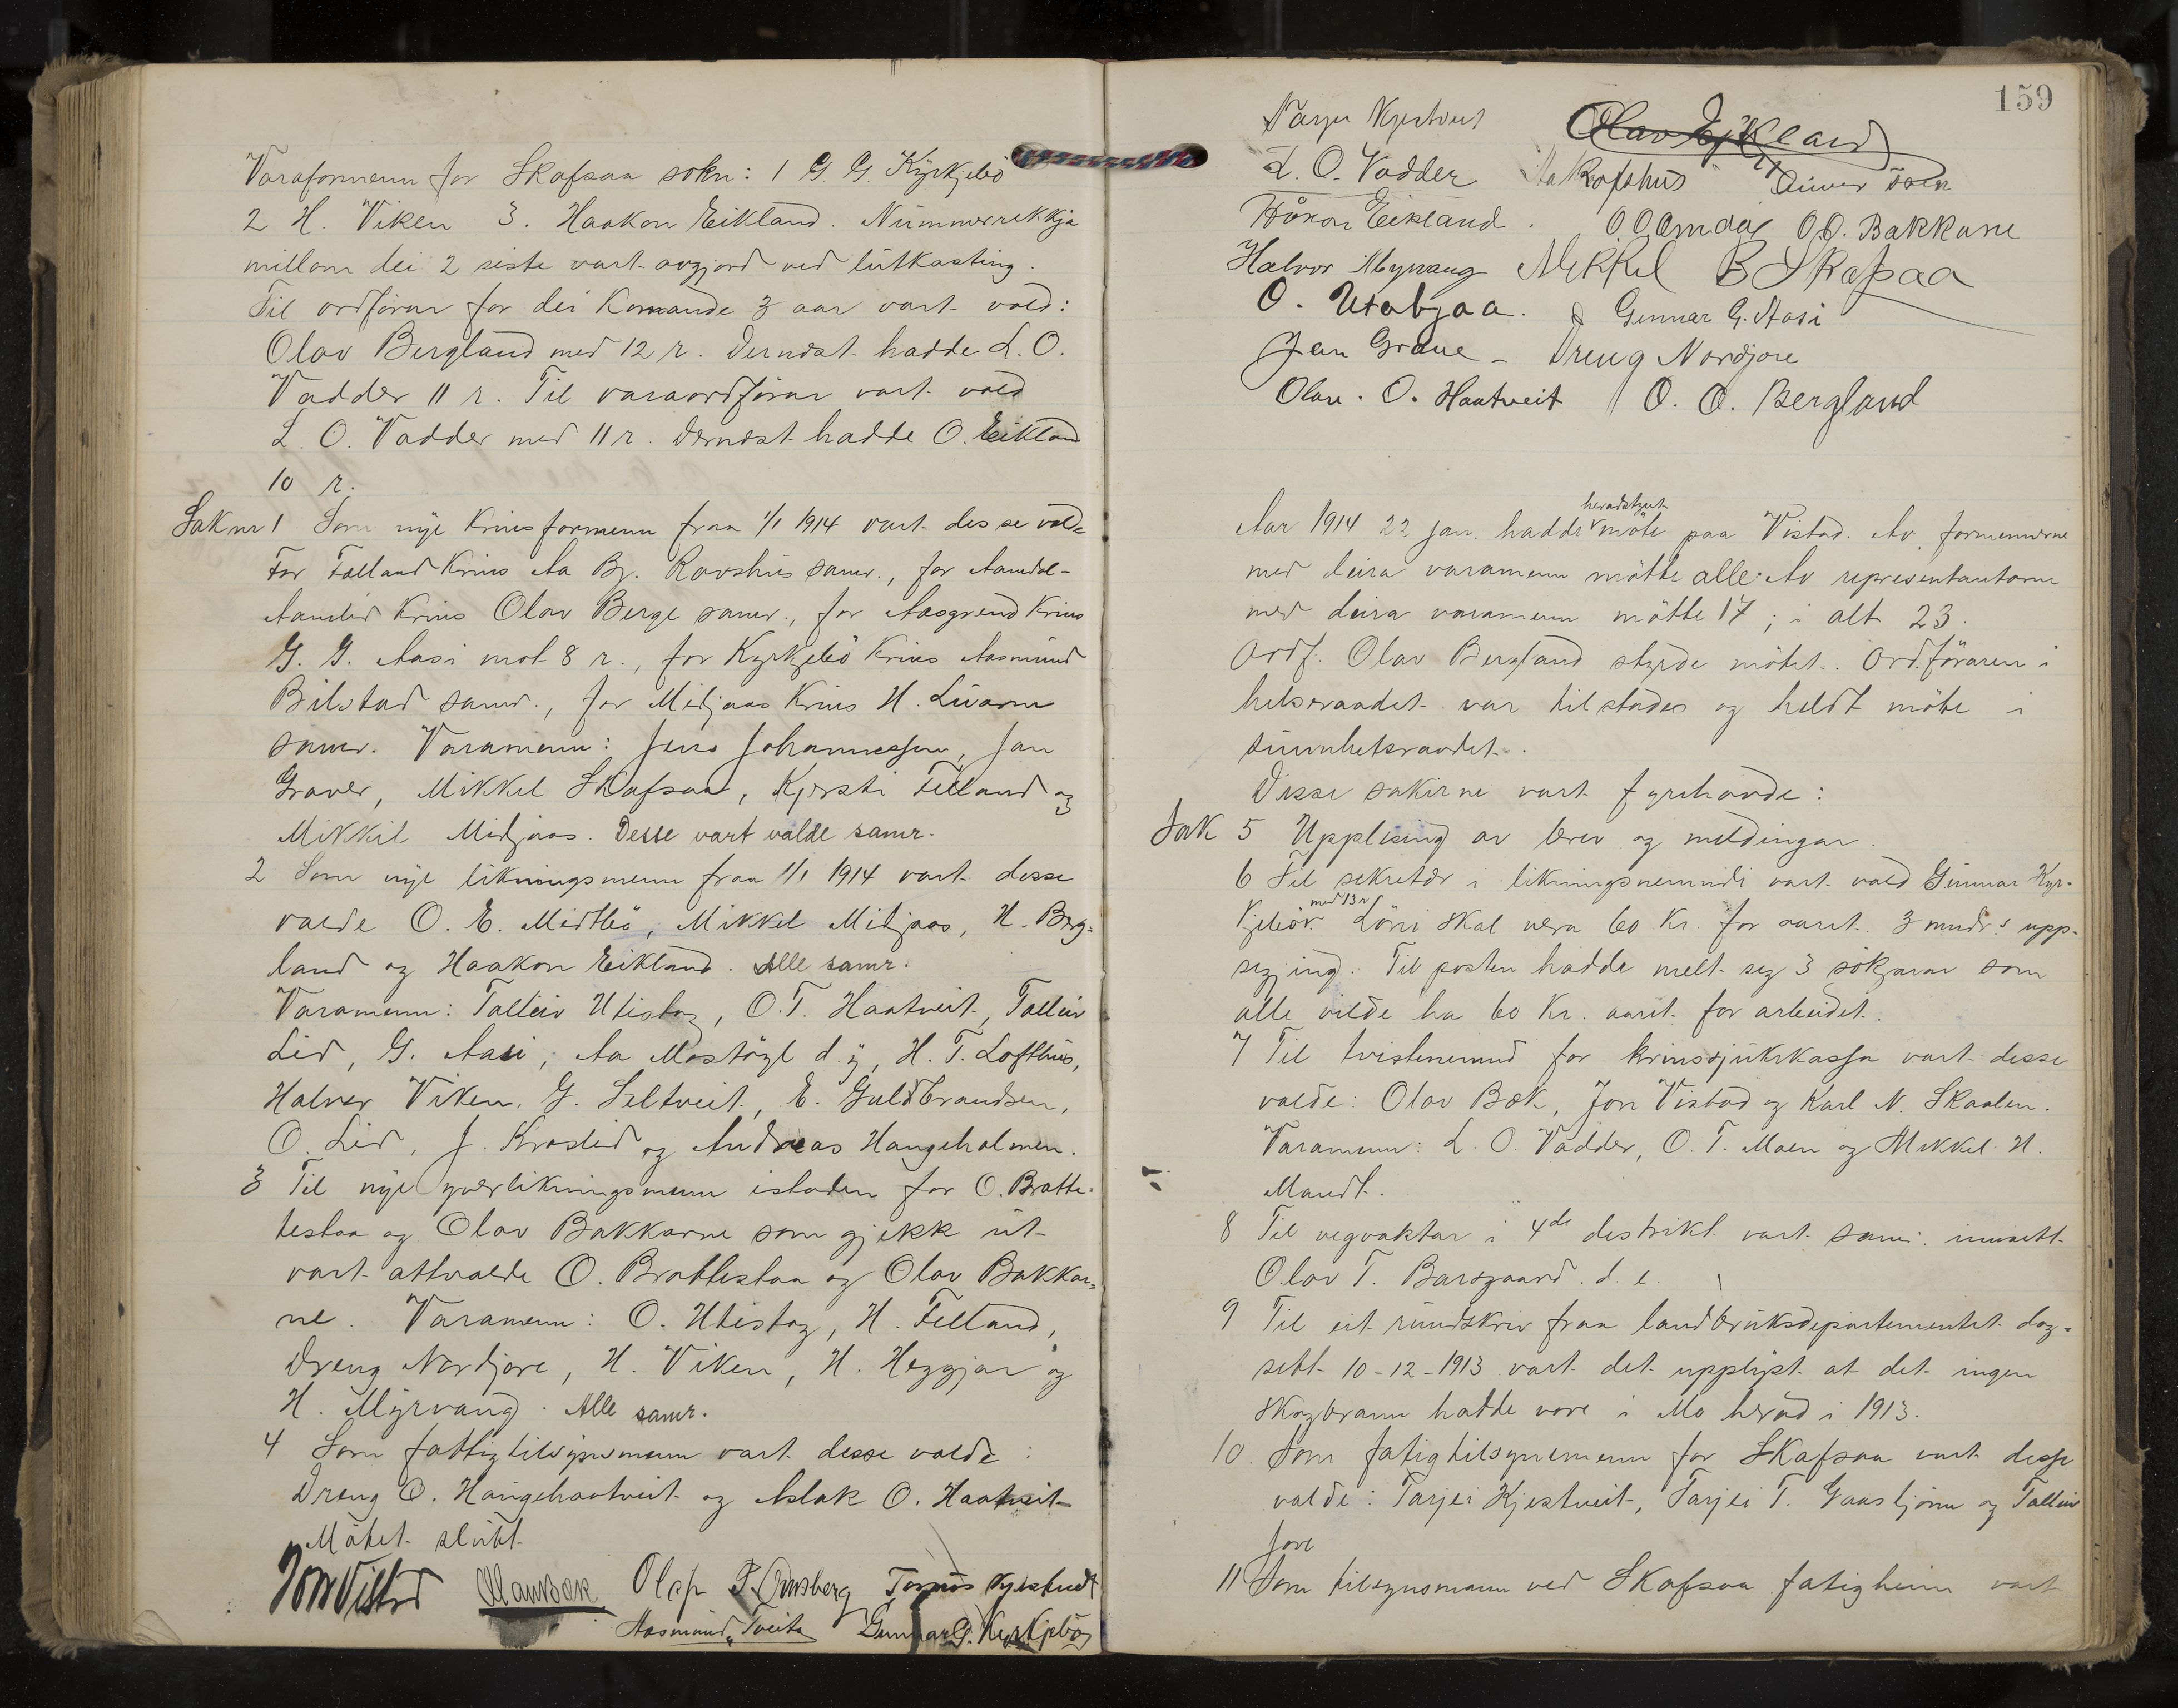 Varaformenn for Skafsaa sokn: 1 G. G. Kyrkjebö
2 H. Viken 3. Haakon Eikland. Nummerrekkja
millom dei 2 siste vart avgjord ved lutkasting.
Til ordförar for dei komande 3 aar vart vald:
Olav Bergland med 12 r. Dernæst hadde L. O.
Vadder 11 r. Til varaordförar vart vald
L. O. Vadder med 11 r. Dernæst hadde O. Eikland
10 r.
Sak nr 1 Som nye krinsformenn fraa 1/1 1914 vart desse valde
For Felland Krins Aa Bj. Rovshus samr., for Aamdal-
Aamlid Krins Olav Berge samr., for Aasgrend Krins
G. G. Aasi mot 8 r., for Kyrkjebö Krins Aasmund
Bilstad samr., for Midjaas Krins H. Livarm
samr. Varamenn: Jens Johannessen, Jan
Graver, Mikkel Skafsaa, Kjersti Felland og
Mikkil Midjaas. Desse vart valde samr.
2 Som nye likningsmenn fraa 1/1 1914 vart desse
valde O. E. Midtbö, Mikkel Midjaas, H. Berg-
land og Haakon Eikland. Alle samr.
Varamenn: Talleiv Utistog, O. T. Haatveit, Talleiv
Lid, G. Aasi, Aa Mostögl d. y, H. T. Lofthus,
Halvor Viken, G. Seltveit, E. Guldbrandsen,
O. Lid, J. Kroslid og Andreas Hangeholmen.
3 Til nye yverlikningsmenn istaden for O. Bratte-
testaa og Olav Bakkarne som gjekk ut
vart attvalde O. Brattestaa og Olav Bakkar-
ne. Varamenn: O. Utistog, H. Felland,
Dreng Nordjore, H. Viken, H. Heggjar og
H. Myrvang. Alle samr.
4 Som fattigtilsynsmenn vart desse valde:
Dreng O. Haugehaatveit og Aslak O. Haatveit
Mötet slutt
Jon Vistad Olav Bæk Olaf T. Omsberg
Aasmund Tveito Gunnar G. Kyrkjebö
159
L. O. Vadder
Håkon Eikland. O O Omdal O. O. Bakkane
Halvor Myrvang Mikkel B Skafsaa
O. Utabjaa. Gunnar G. Aasi
Jan Grave - Dreng Nordjore
Olav. O. Haatveit O. O. Bergland
heradstyret
Aar 1914 22 jan. hadde möte paa Vistad. Av formennerne
med deira varamenn mötte alle. Av representantarne
med deira varamenn mötte 17; i alt 23.
Ordf. Olav Bergland styrde mötet. Ordföraren i
helseraadet var tilstades og heldt möte i
sunnhetsraadet.
Desse sakirne vart fyrehavde:
Sak 5 Upplesing av brev og meldingar.
6 Til sekretær i likningsnemndi vart vald Gunnar Kyr-
med 13 r
kjebö. Löni skal vera 60 Kr. for aaret. 3 mndrs upp-
segjing. Til posten hadde melt seg 3 sökjarar som
alle vilde ha 60 Kr. aaret for arbeidet.
7 Til tvistenemnd for krinssjukekassa vart desse
valde: Olav Bæk, Jon Vistad og Karl N. Skaalen.
Varamenn: L. O. Vadder, O. T. Moen og Mikkel H.
Mandt.
8 Til vegvaktar i 4de distrikt vart samr. innsett
Olav T. Barsgaard. d. e.
9 Til eit rundskriv fraa landbruksdepartementet dag-
sett 10-12-1913 vart det upplyst at det ingen
skogbrann hadde vore i Mo herad i 1913.
10. Som fatigtilsynsmenn for Skafsaa vart desse
valde: Tarjei Kjestveit, Tarjei T. Gaastjönn og Talleiv
Jore
11 Som tilsynsmann ved Skafsaa fatigheim vart